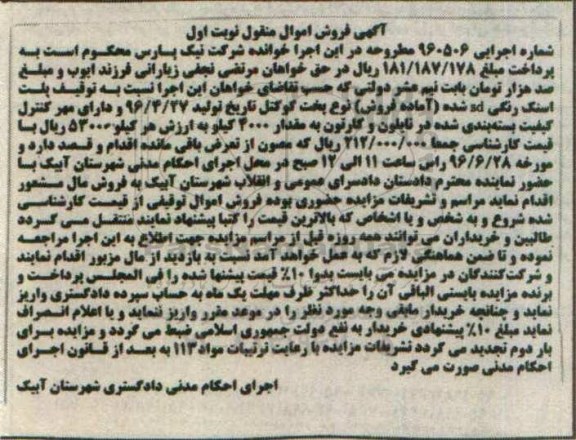 آگهی فروش اموال منقول نوبت اول
شماره اجرایی ۹۶۰۵۰۶ مطروحه در این اجرا خوانده شرکت نیک پارس محکوم است به
پرداخت مبلغ ۱۸۱/۱۸۷/۱۷۸ ریال در حق خواهان مرتضی نجفی زیارانی فرزند ایوب و مبلغ
صد هزار تومان بابت نیم عشر دولتی که حسب تقاضای خواهان این اجرا نسبت به توقیف پلت
اسنک رنگی sd شده (آماده فروش) نوع پخت کوکتل تاریخ تولید ۹۶/۴/۲۷ و دارای مهر کنترل
کیفیت بسته‌بندی شده در نایلون و کارتون به مقدار ۴۰۰۰ کیلو به ارزش هر کیلو ۵۳۰۰۰ ریال با
قیمت کارشناسی جمعا ۲۱۲/۰۰۰/۰۰۰ ریال که مصون از تعرض باقی مانده اقدام و قصد دارد و
مورخه ۹۶/۶/۲۸ راس ساعت ۱۱ الی ۱۲ صبح در محل اجرای احکام مدنی شهرستان آبیک با
حضور نماینده محترم دادستان دادسرای عمومی و انقلاب شهرستان آبیک به فروش مال مشعور
اقدام نماید مراسم و تشریفات مزایده حضوری بوده فروش اموال توقیفی از قیمت کارشناسی
شده شروع و به شخص و یا اشخاص که بالاترین قیمت را کتبا پیشنهاد نمایند منتقل می گردد
طالبین و خریداران می توانند همه روزه قبل از مراسم مزایده جهت اطلاع به این اجرا مراجعه
نموده و تا ضمن هماهنگی لازم که به عمل خواهد آمد نسبت به بازدید از مال مزبور اقدام نمایند
و شرکت‌کنندگان در مزایده می بایست بدوا ۱۰٪ قیمت پیشنها شده را فی المجلس پرداخت و
برنده مزایده بایستی الباقی آن را حداکثر ظرف مهلت یک ماه به حساب سپرده دادگستری واریز
نماید و چنانچه خریدار مابقی وجه مورد نظر را در موعد مقرر واریز ننماید و یا اعلام انصراف
نماید مبلغ ۱۰٪ پیشنهادی خریدار به نفع دولت جمهوری اسلامی ضبط می گردد و مزایده برای
بار دوم تجدید می گردد تشریفات مزایده با رعایت ترتیبات مواد ۱۱۳ به بعد از قانون اجرای
احکام مدنی صورت می گیرد
اجرای احکام مدنی دادگستری شهرستان آبیک